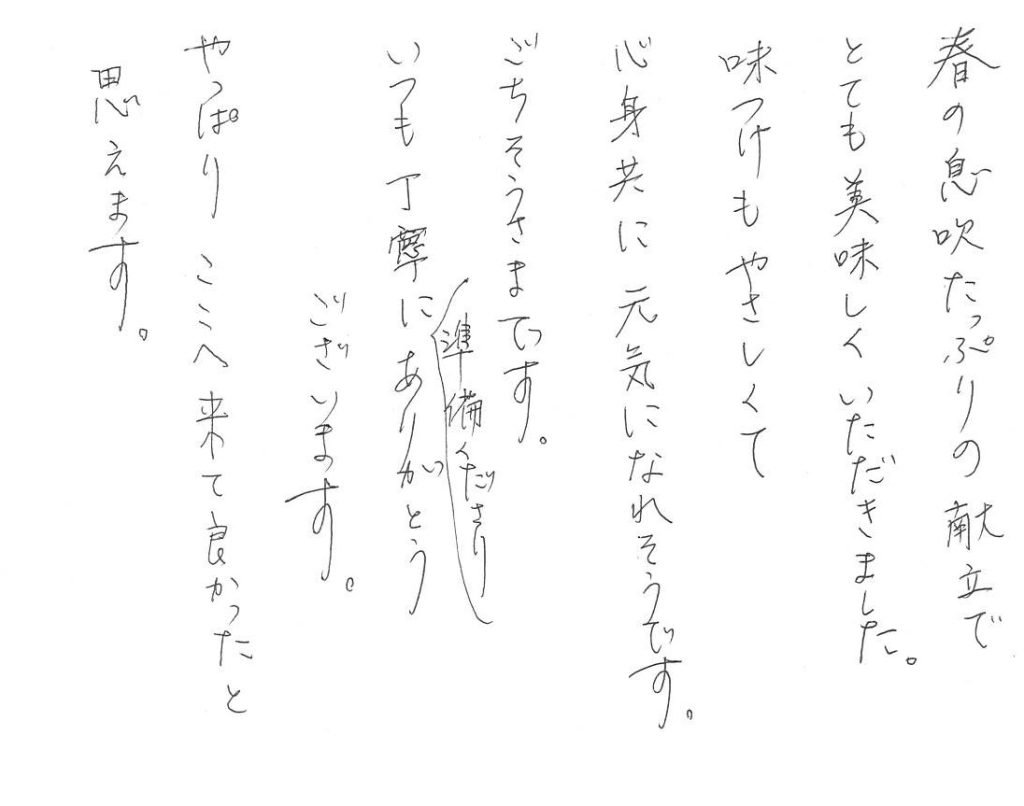 春の息吹たっぷりの献立で
とても美味しくいただきました。
味つけもやさしくて
心身共に元気になれそうです。
ごちそうさまです。
いつも丁寧に準備くださりありがとう
ございます。
やっぱりここへ来て良かったと
思えます。